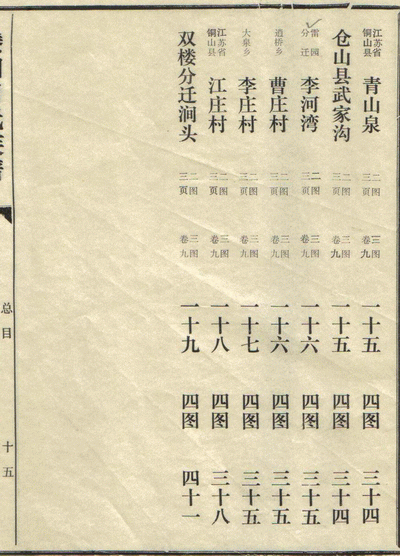 江苏省铜山县 青山泉 二图三页 三图卷九 一十五 四图 三十四
仓山县武家沟 二图三页 三图卷九 一十五 四图 三十四
雷园分迁 李河湾 二图三页 三图卷九 一十六 四图 三十五
道桥乡 曹庄村 二图三页 三图卷九 一十六 四图 三十五
大泉乡 李庄村 二图三页 三图卷九 一十七 四图 三十五
江苏省铜山县 江庄村 二图三页 三图卷九 一十八 四图 三十八
双楼分迁涧头 二图三页 三图卷九 一十九 四图 四十一
总目 十五